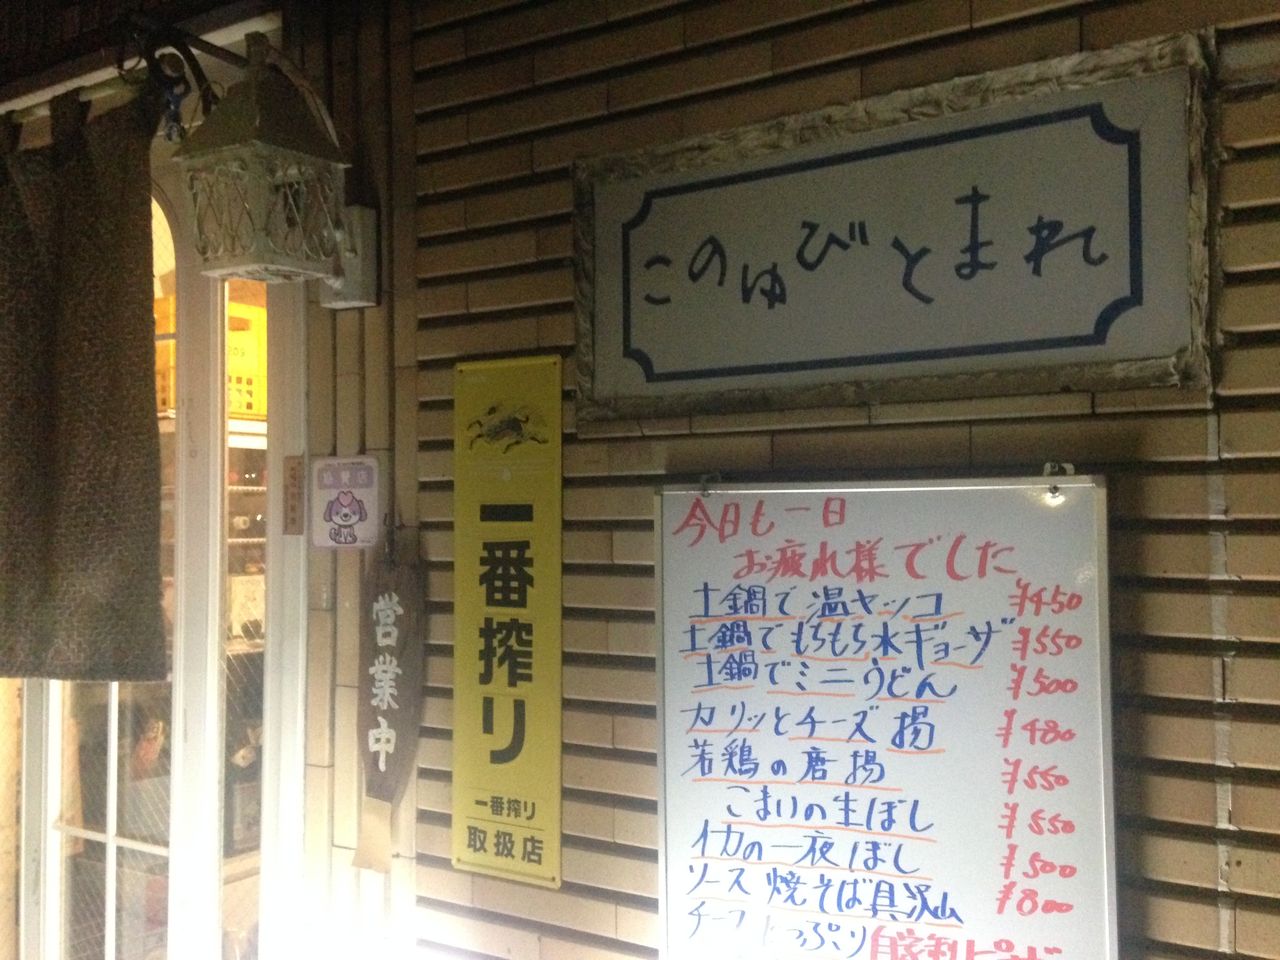 このゆびとまれ
一番搾り
一番搾り
取扱店
営業中
協賛店
今日も一日
お疲れ様でした
土鍋で温ヤッコ ¥450
土鍋でもちもち水ギョーザ ¥550
土鍋でミニうどん ¥500
カリッとチーズ揚 ¥480
若鶏の唐揚 ¥550
こまいの生ぼし ¥550
イカの一夜ぼし ¥500
ソース焼そば具沢山 ¥800
たっぷり自家製ピザ